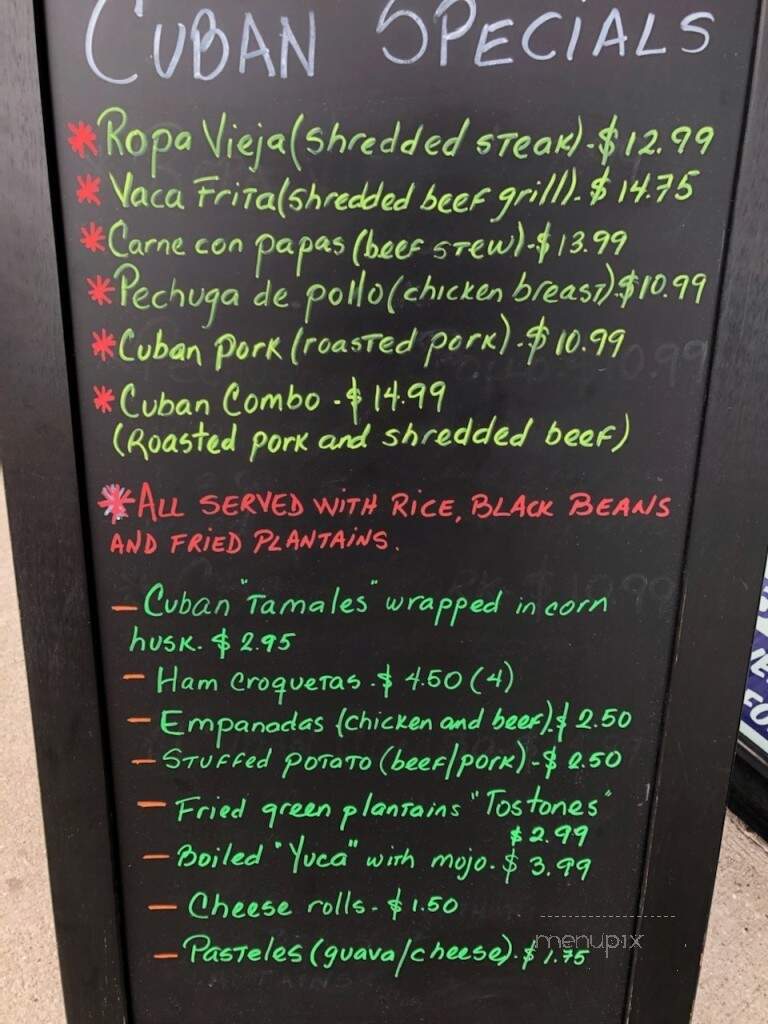 CUBAN SPECIALS
* Ropa Vieja (shredded steak)-$12.99
* Vaca Frita (shredded beef grill)-$14.75
* Carne con papas (beef stew)-$13.99
* Pechuga de pollo (chicken breast)-$10.99
* Cuban Pork (roasted pork)-$10.99
* Cuban Combo -$14.99
(Roasted pork and shredded beef)
* ALL SERVED WITH RICE, BLACK BEANS
AND FRIED PLANTAINS.
- Cuban "Tamales" wrapped in corn
husk. $2.95
- Ham Croquetas.$ 4.50 (4)
- Empanadas (chicken and beef).$ 2.50
- Stuffed potato (beef/pork)-$ 2.50
- Fried green plantains "Tostones"
$2.99
- Boiled "Yuca" with mojo.$ 3.99
- Cheese rolls-$1.50
- Pasteles (guava/cheese).$ 1.75
menupix